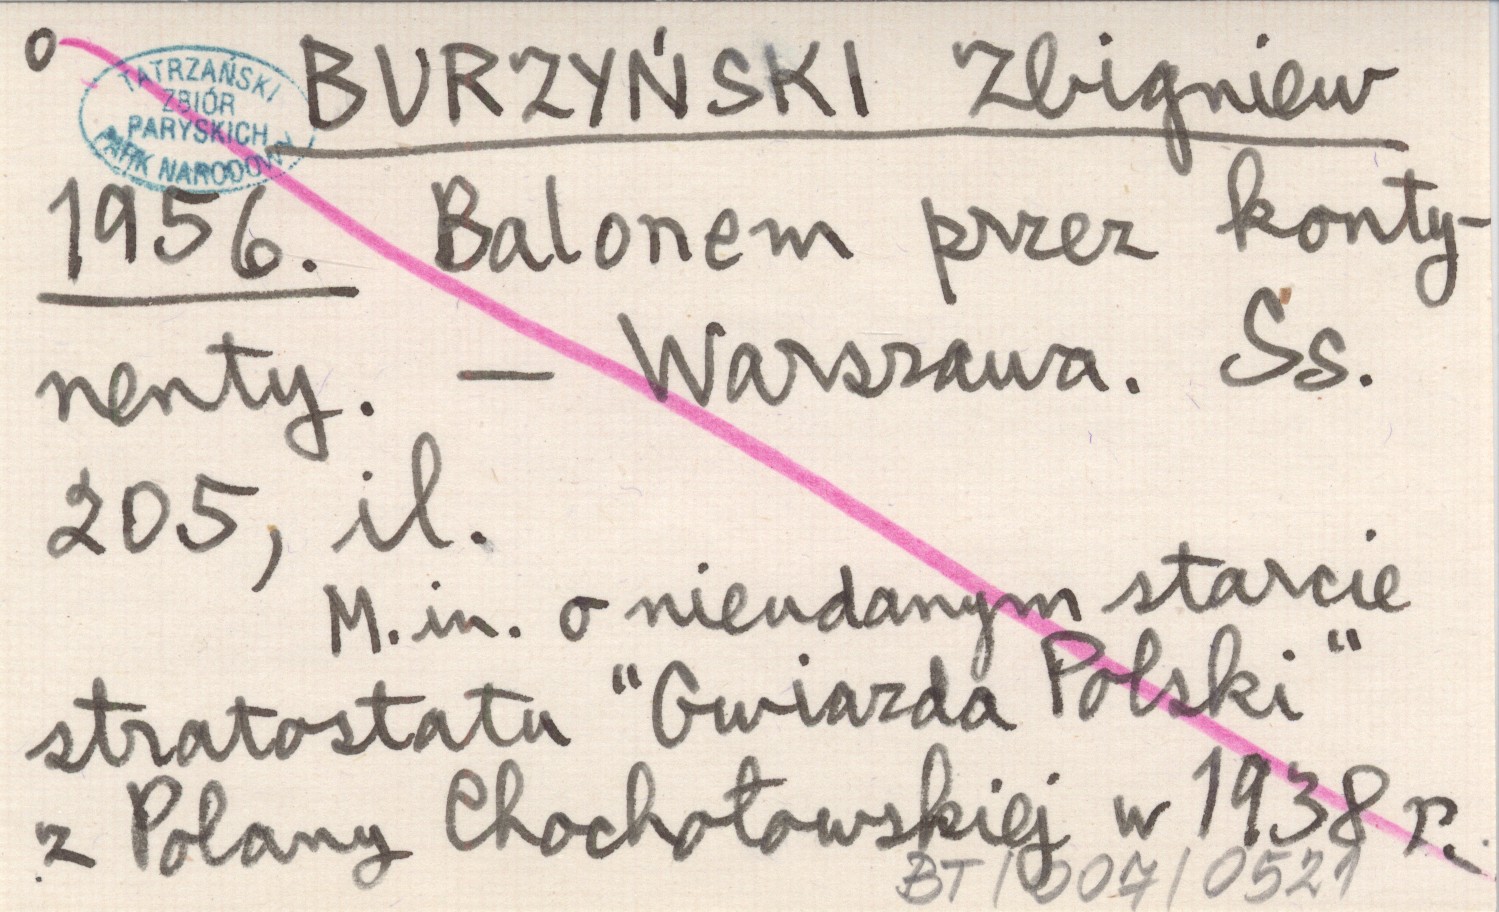 o
TATRZAŃSKI
ZBIÓR
PARYSKICH
PARK NARODOWY
BURZYŃSKI Zbigniew
1956. Balonem przez konty-
nenty. — Warszawa. Ss.
205, il.
M.in. o nieudanym starcie
stratostatu "Gwiazda Polski"
z Polany Chochołowskiej w 1938 r.
BT/007/0521